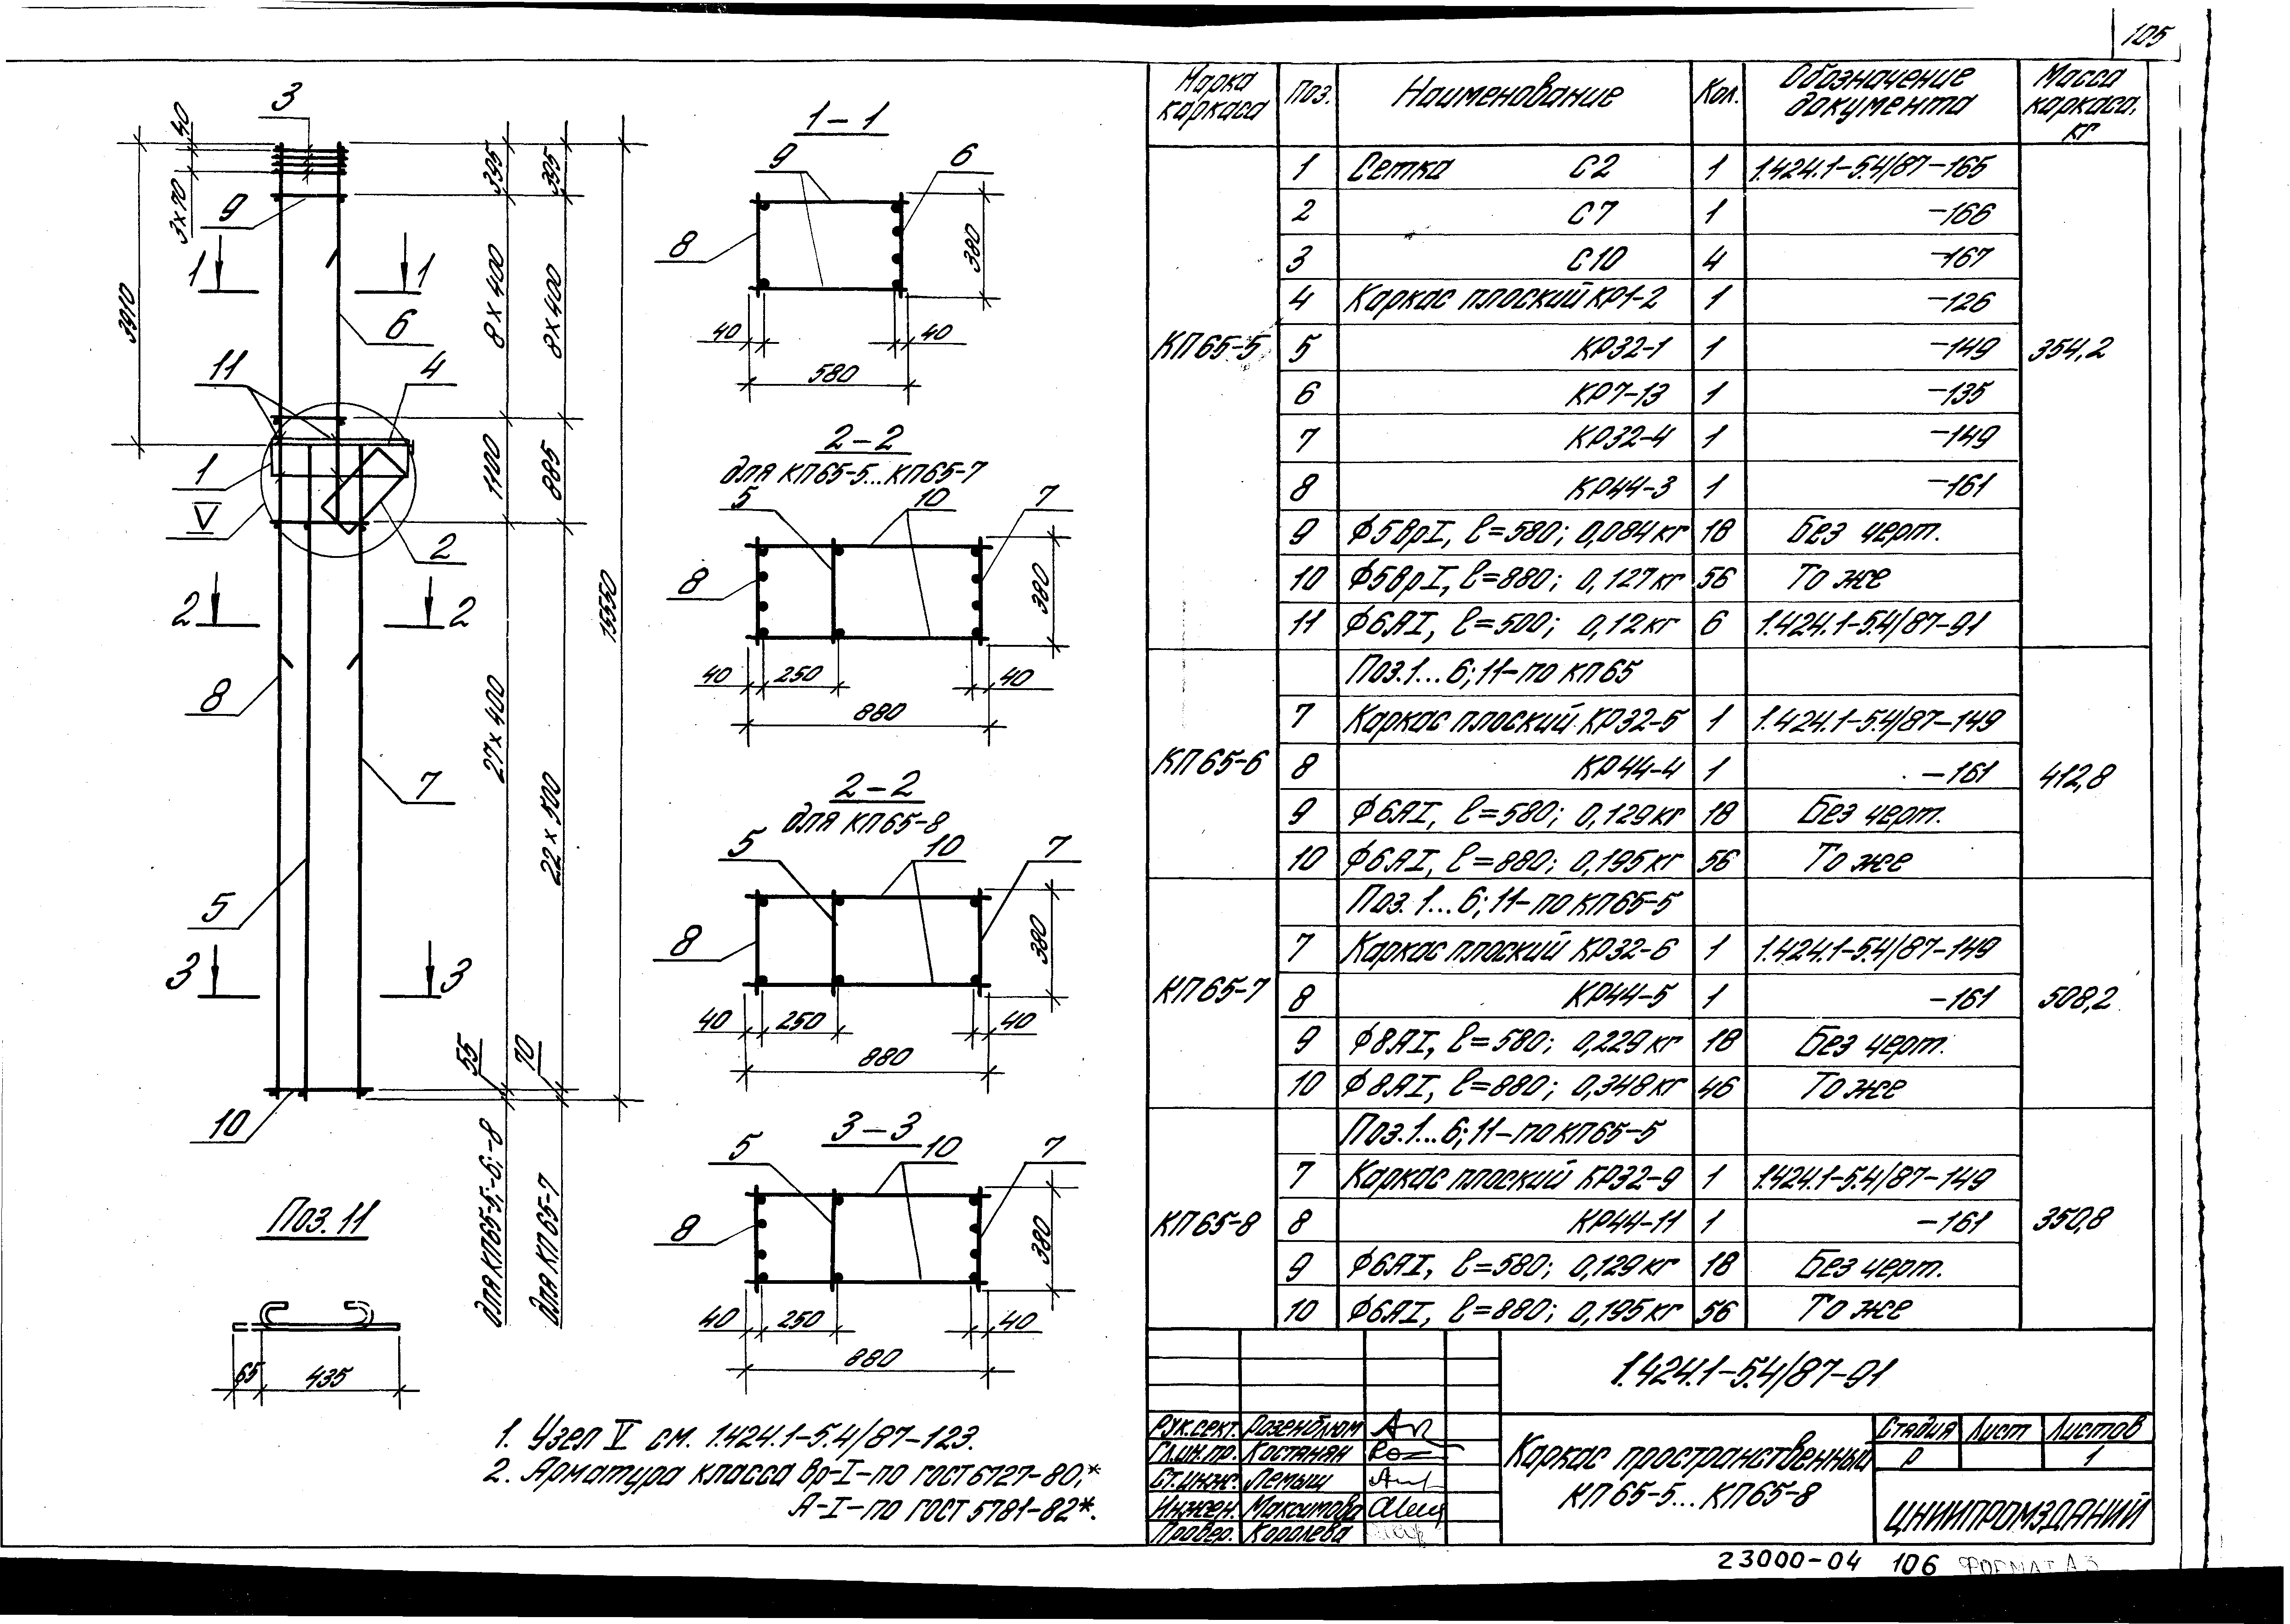 105
3
40
3×70
3910
9
1
1
6
11
4
1
V
2
2
2
8
7
5
3
3
10
395
395
8×400
8×400
1100
885
27×400
22×500
15550
55
70
для КП65-5;-6;-8
для КП65-7
Поз. 11
65
435
1-1
9
6
8
380
40
40
580
2-2
для КП65-5...КП65-7
5
10
7
8
380
40
250
40
880
2-2
для КП65-8
5
10
7
8
380
40
250
40
880
3-3
5
10
7
8
380
40
250
40
880
1. Узел V см. 1.424.1-5.4/87-123.
2. Арматура класса Вр-I-по ГОСТ 6727-80,*
А-I-по ГОСТ 5781-82*.
Марка каркаса Поз. Наименование Кол. Обозначение документа Масса каркаса, кг
КП65-5 354,2
1 Сетка С2 1 1.424.1-5.4/87-165
2 С7 1 -166
3 С10 4 -167
4 Каркас плоский КР1-2 1 -126
5 КР32-1 1 -149
6 КР7-13 1 -135
7 КР32-4 1 -149
8 КР44-3 1 -161
9 Ф5ВрI, l=580; 0,084кг 18 Без черт.
10 Ф5ВрI, l=880; 0,127кг 56 То же
11 Ф6АI, l=500; 0,12кг 6 1.424.1-5.4/87-91
КП65-6 412,8
Поз.1...6; 11-по КП65
7 Каркас плоский КР32-5 1 1.424.1-5.4/87-149
8 КР44-4 1 -161
9 Ф6АI, l=580; 0,129кг 18 Без черт.
10 Ф6АI, l=880; 0,195кг 56 То же
КП65-7 508,2
Поз. 1...6; 11-по КП65-5
7 Каркас плоский КР32-6 1 1.424.1-5.4/87-149
8 КР44-5 1 -161
9 Ф8АI, l=580; 0,229кг 18 Без черт.
10 Ф8АI, l=880; 0,348кг 46 То же
КП65-8 350,8
Поз.1...6; 11-по КП65-5
7 Каркас плоский КР32-9 1 1.424.1-5.4/87-149
8 КР44-11 1 -161
9 Ф6АI, l=580; 0,129кг 18 Без черт.
10 Ф6АI, l=880; 0,195кг 56 То же
1.424.1-5.4/87-91
Рук.сект. Розенблюм
Гл.ин.пр. Костанян
Ст.инж. Лемыш
Инжен. Максимова
Провер. Королева
Каркас пространственный
КП65-5...КП65-8
Стадия Лист Листов
Р 1
ЦНИИПРОМЗДАНИЙ
23000-04 106 ФОРМАТ А3